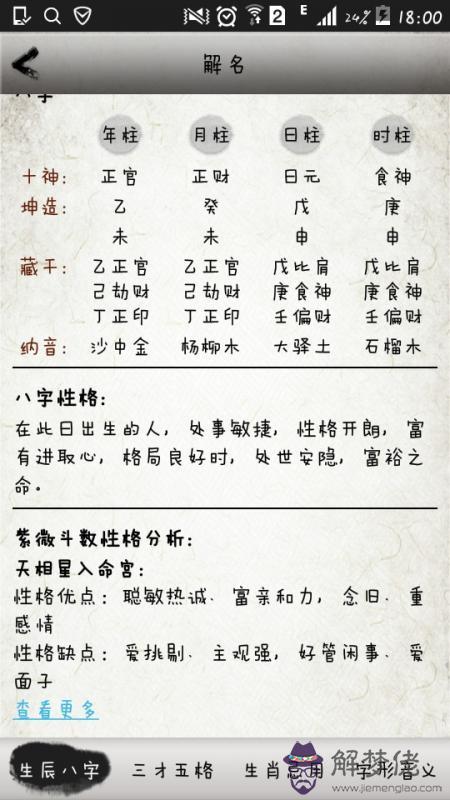 2 E 24% 18:00
解名
八字
年柱 月柱 日柱 时柱
十神: 正官 正财 日元 食神
坤造: 乙 癸 戊 庚
未 未 申 申
藏干: 乙正官 乙正官 戊比肩 戊比肩
己劫财 己劫财 庚食神 庚食神
丁正印 丁正印 壬偏财 壬偏财
纳音: 沙中金 杨柳木 大驿土 石榴木
八字性格:
在此日出生的人, 处事敏捷, 性格开朗, 富
有进取心, 格局良好时, 处世安隐, 富裕之
命。
紫微斗数性格分析:
天相星入命宫:
性格优点: 聪敏热诚、富亲和力, 念旧、重
感情
性格缺点: 爱挑剔、主观强, 好管闲事、爱
面子
查看更多
生辰八字 三才五格 生肖 用 字形音义
解梦佬
http://www.jiemenglao.com